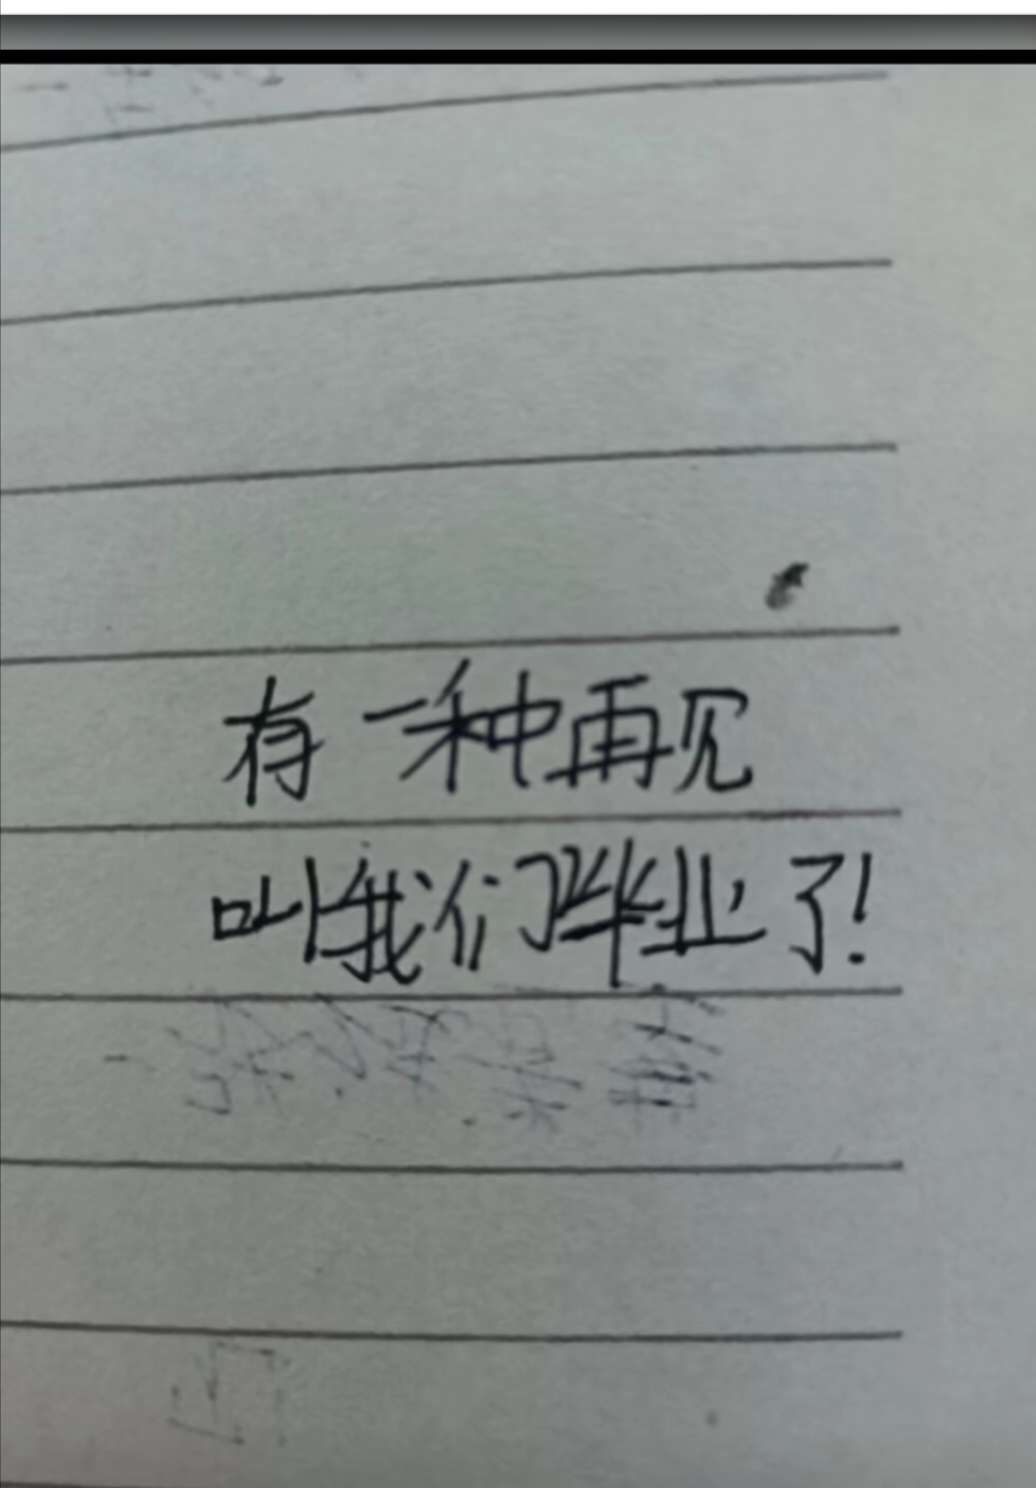 有一种再见
叫我们毕业了!